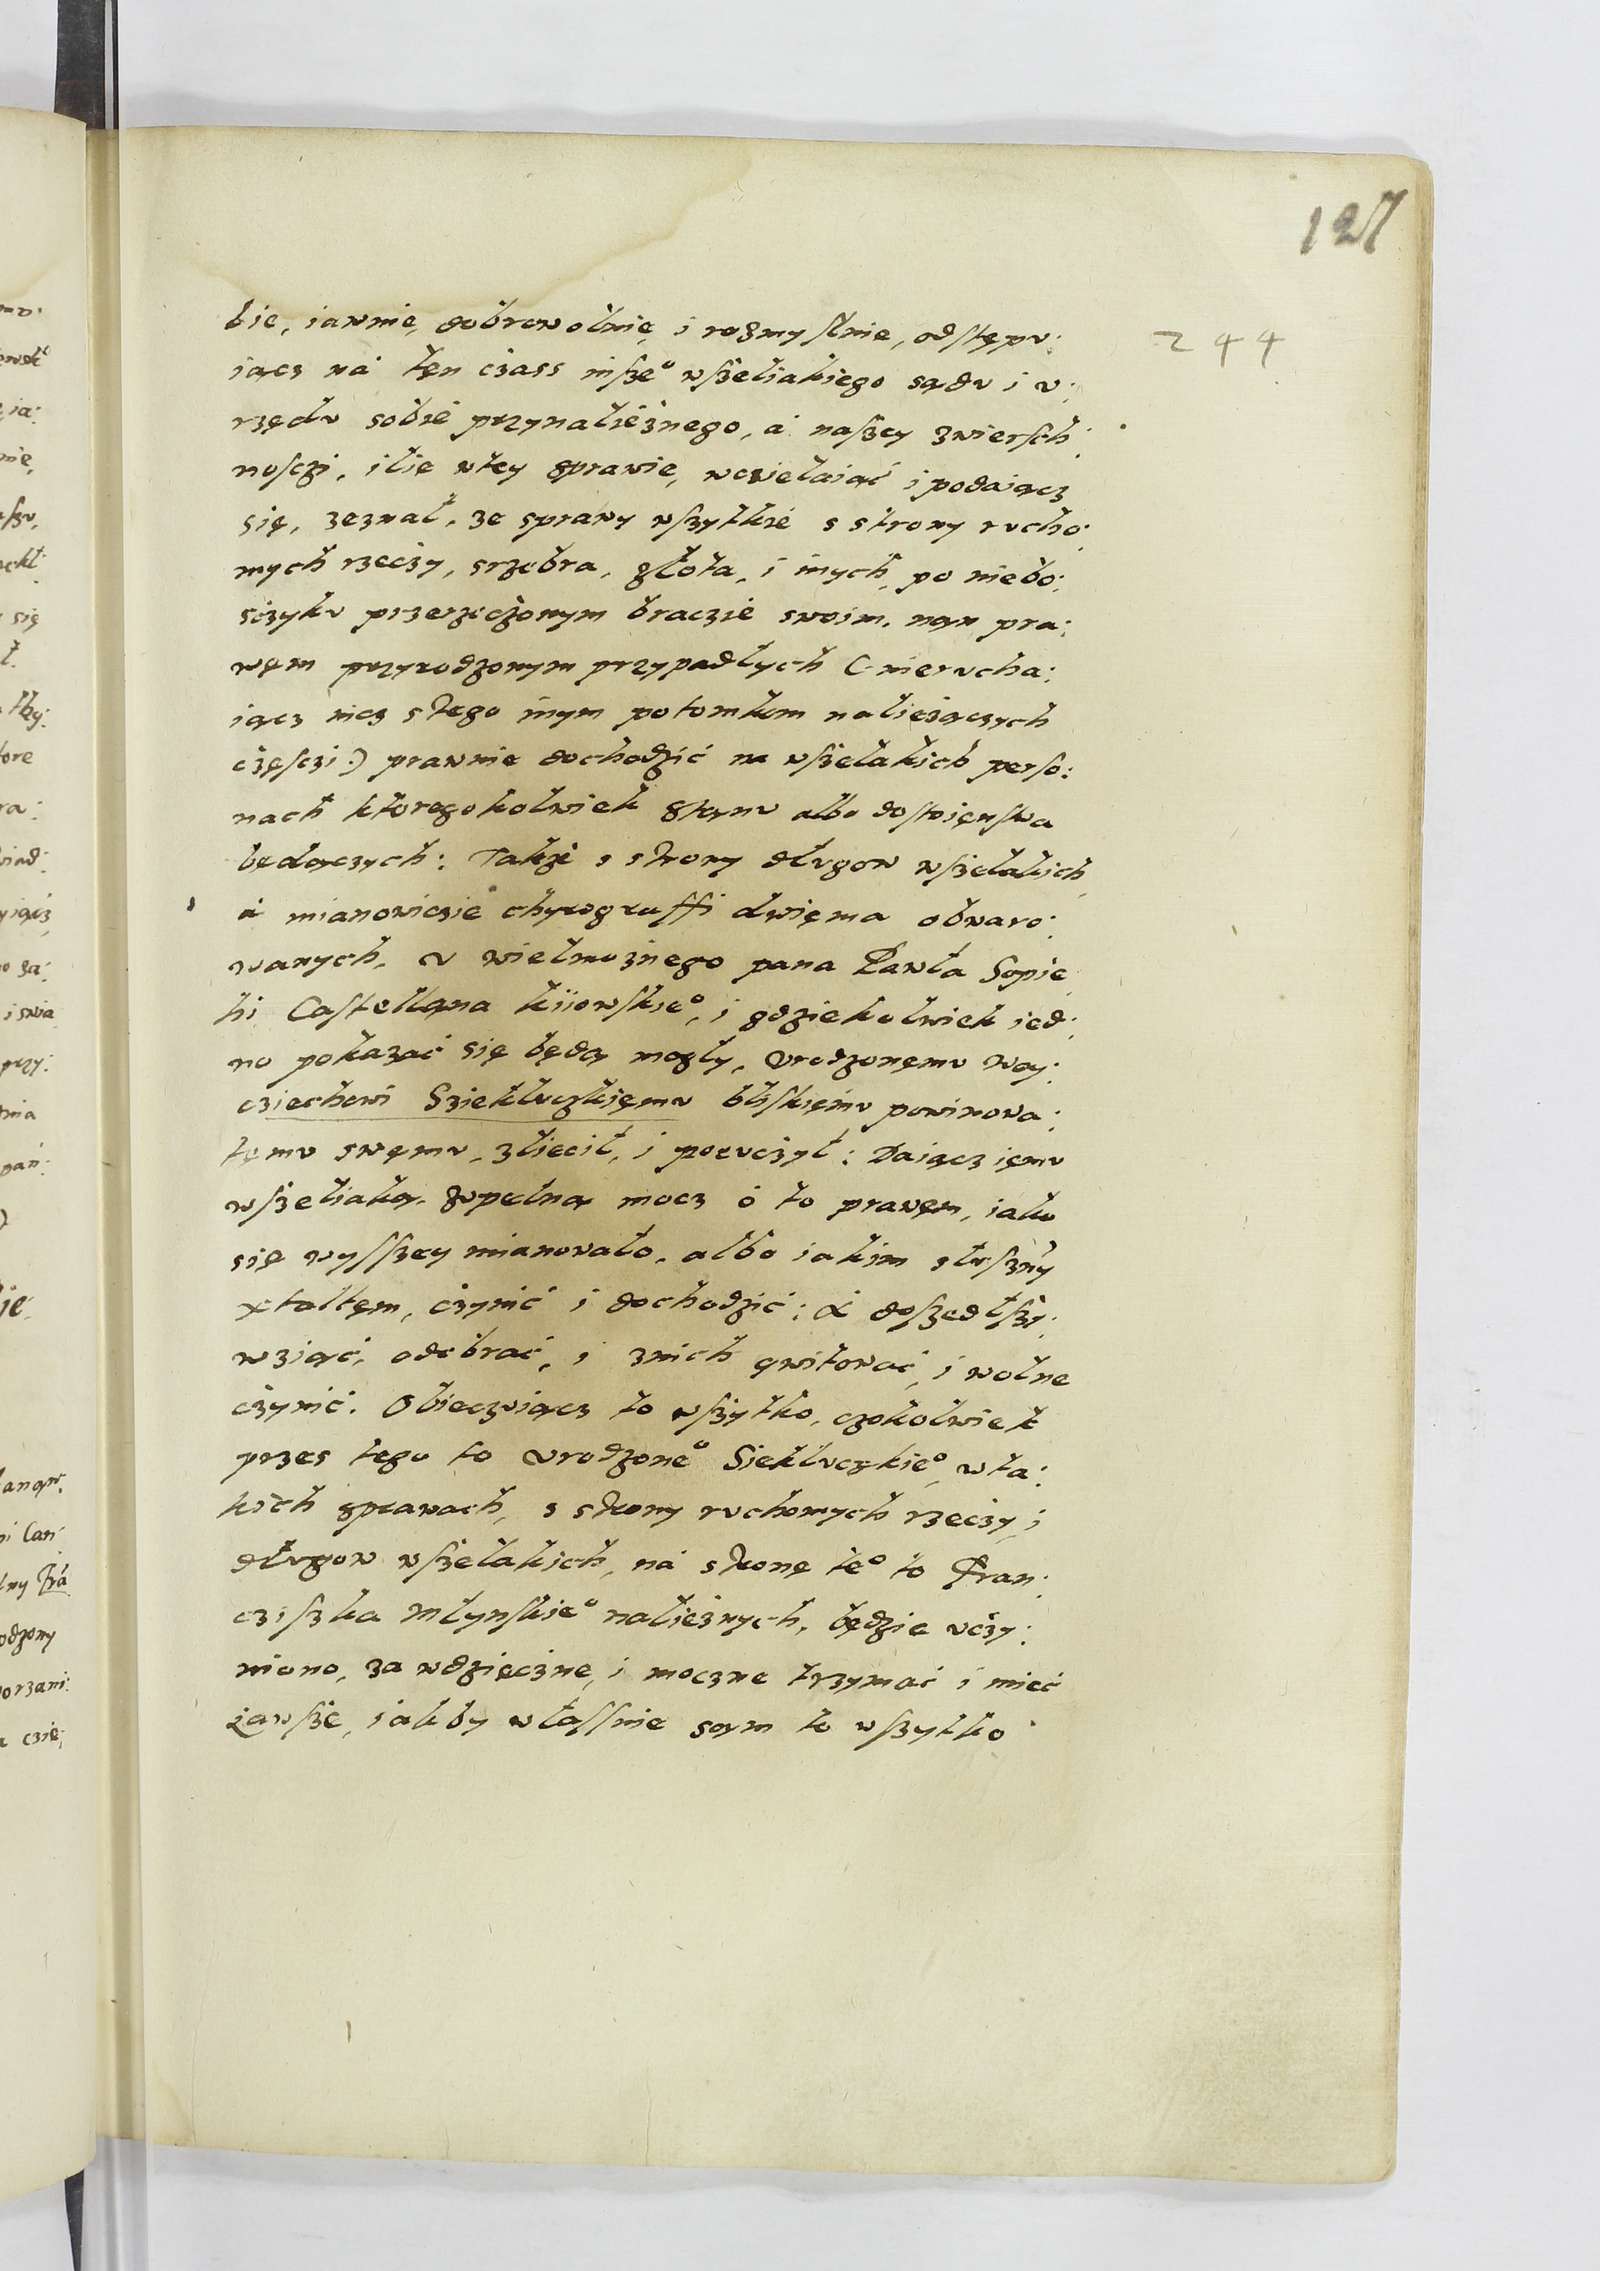 127
244
bie, iawnie, dobrowolnie, i rozmyslnie, odstępu:
iącz ná tęn czass inszeº wszeliakiego sądu i u:
rzędu sobie przynalieznego, á naszey zwiersch:
noszci, ilie wtey sprawie, wcielaiąć i podaiącz
się, zeznał, ze sprawy wszytkie s strony rucho:
mych rzeczy, srzebra, złota, i inych, po niebo:
sczyku przerzeczonym braczie swoim, nąn pra:
węm przyrodzonym przypadłych (: nierucha:
iącz nicz stego inym potomkom naliezączych
częsczi :) prawnie dochodzić na wszelakich perso:
nach ktoregokolwiek stąnu albo dostoięnstwa
będączych: Także s strony długow wszelakich,
á mianowiczie chyrograffi dwięma obwaro:
wanych, u wielmoznego pana Pawła Sapie
hi Castellana kiiowskieº, i gdziekolwiek ied:
no pokazać się będą mogły, Urodzonęmu Woy:
cziechowi Sziekluczkięmu bliskięmu powinowa:
tęmu swęmu, zliecił, i poruczył: Daiącz ięmu
wszeliaką zupełną mocz o to prawęm, iako
się wyszszey mianowało, albo iakim słuszny
xtałtęm, czynić i dochodzić: A doszedłszy:
wziąć, odebrać, i znich qwitować, i wolne
czynić. Obieczuiącz to wszytko, czokolwiek
przes tego to Urodzoneº Siekluczkieº, wta:
kich sprawach, s strony ruchomych rzeczy, i
długow wszelakich, ná stronę teº to Fran:
cziszka Młynskieº nalieznych, będzie uczy:
niono, za wdzięczne, i moczne trzymać i mieć
zawsze, iakby własnie sąm to wszytko